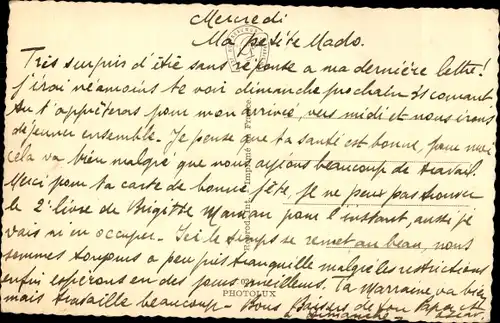 Mercredi
Ma petite Mado.
Très surpris d'être sans réponse a ma dernière lettre!
j'irai néamoins te voir dimanche prochain 25 courant
tu t'appréteras pour mon arrivée, vers midi et nous irons
déjeuner ensemble. Je pense que ta santé est bonne, pour moi
cela va bien malgré que nous ayions beaucoup de travail.
Merci pour ta carte de bonne fête, je ne peux pas trouver
le 2e livre de Brigitte Maman pour l'instant, aussi je
vais m'en occuper. Ici le temps se remet au beau, nous
sommes toujours a peu près tranquille malgré les restrictions
enfin espérons en des jours meilleurs. ta Marraine va bien
mais travaille beaucoup. Bons Baisers de ton Papa
a dimanche
Reproduction Imprimé en France
PHOTOLUX